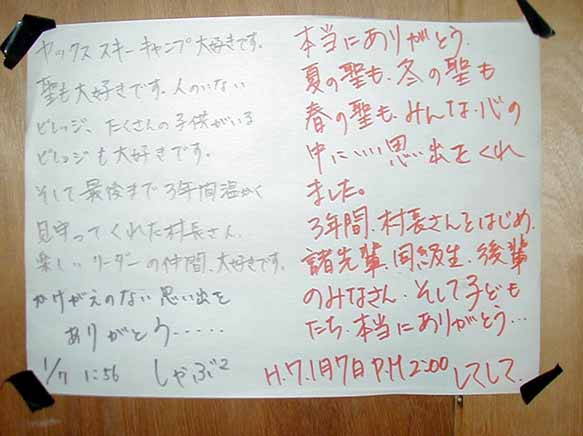 ヤックス スキーキャンプ大好きです.
聖も大好きです.人のいない
ビレッジ、たくさんの子供がいる
ビレッジも大好きです.
そして最後まで3年間温かく
見守ってくれた村長さん.
楽しいリーダーの仲間、大好きです.
かけがえのない思い出を
ありがとう……
1/7 1:56 しゃぶ2
本当にありがとう.
夏の聖も、冬の聖も
春の聖も、みんな心の
中にいい思い出をくれ
ました。
3年間、村長さんをはじめ、
諸先輩、同級生、後輩
のみなさん、そして子ども
たち、本当にありがとう…
H.7.1月7日 P.M 2:00 してして.